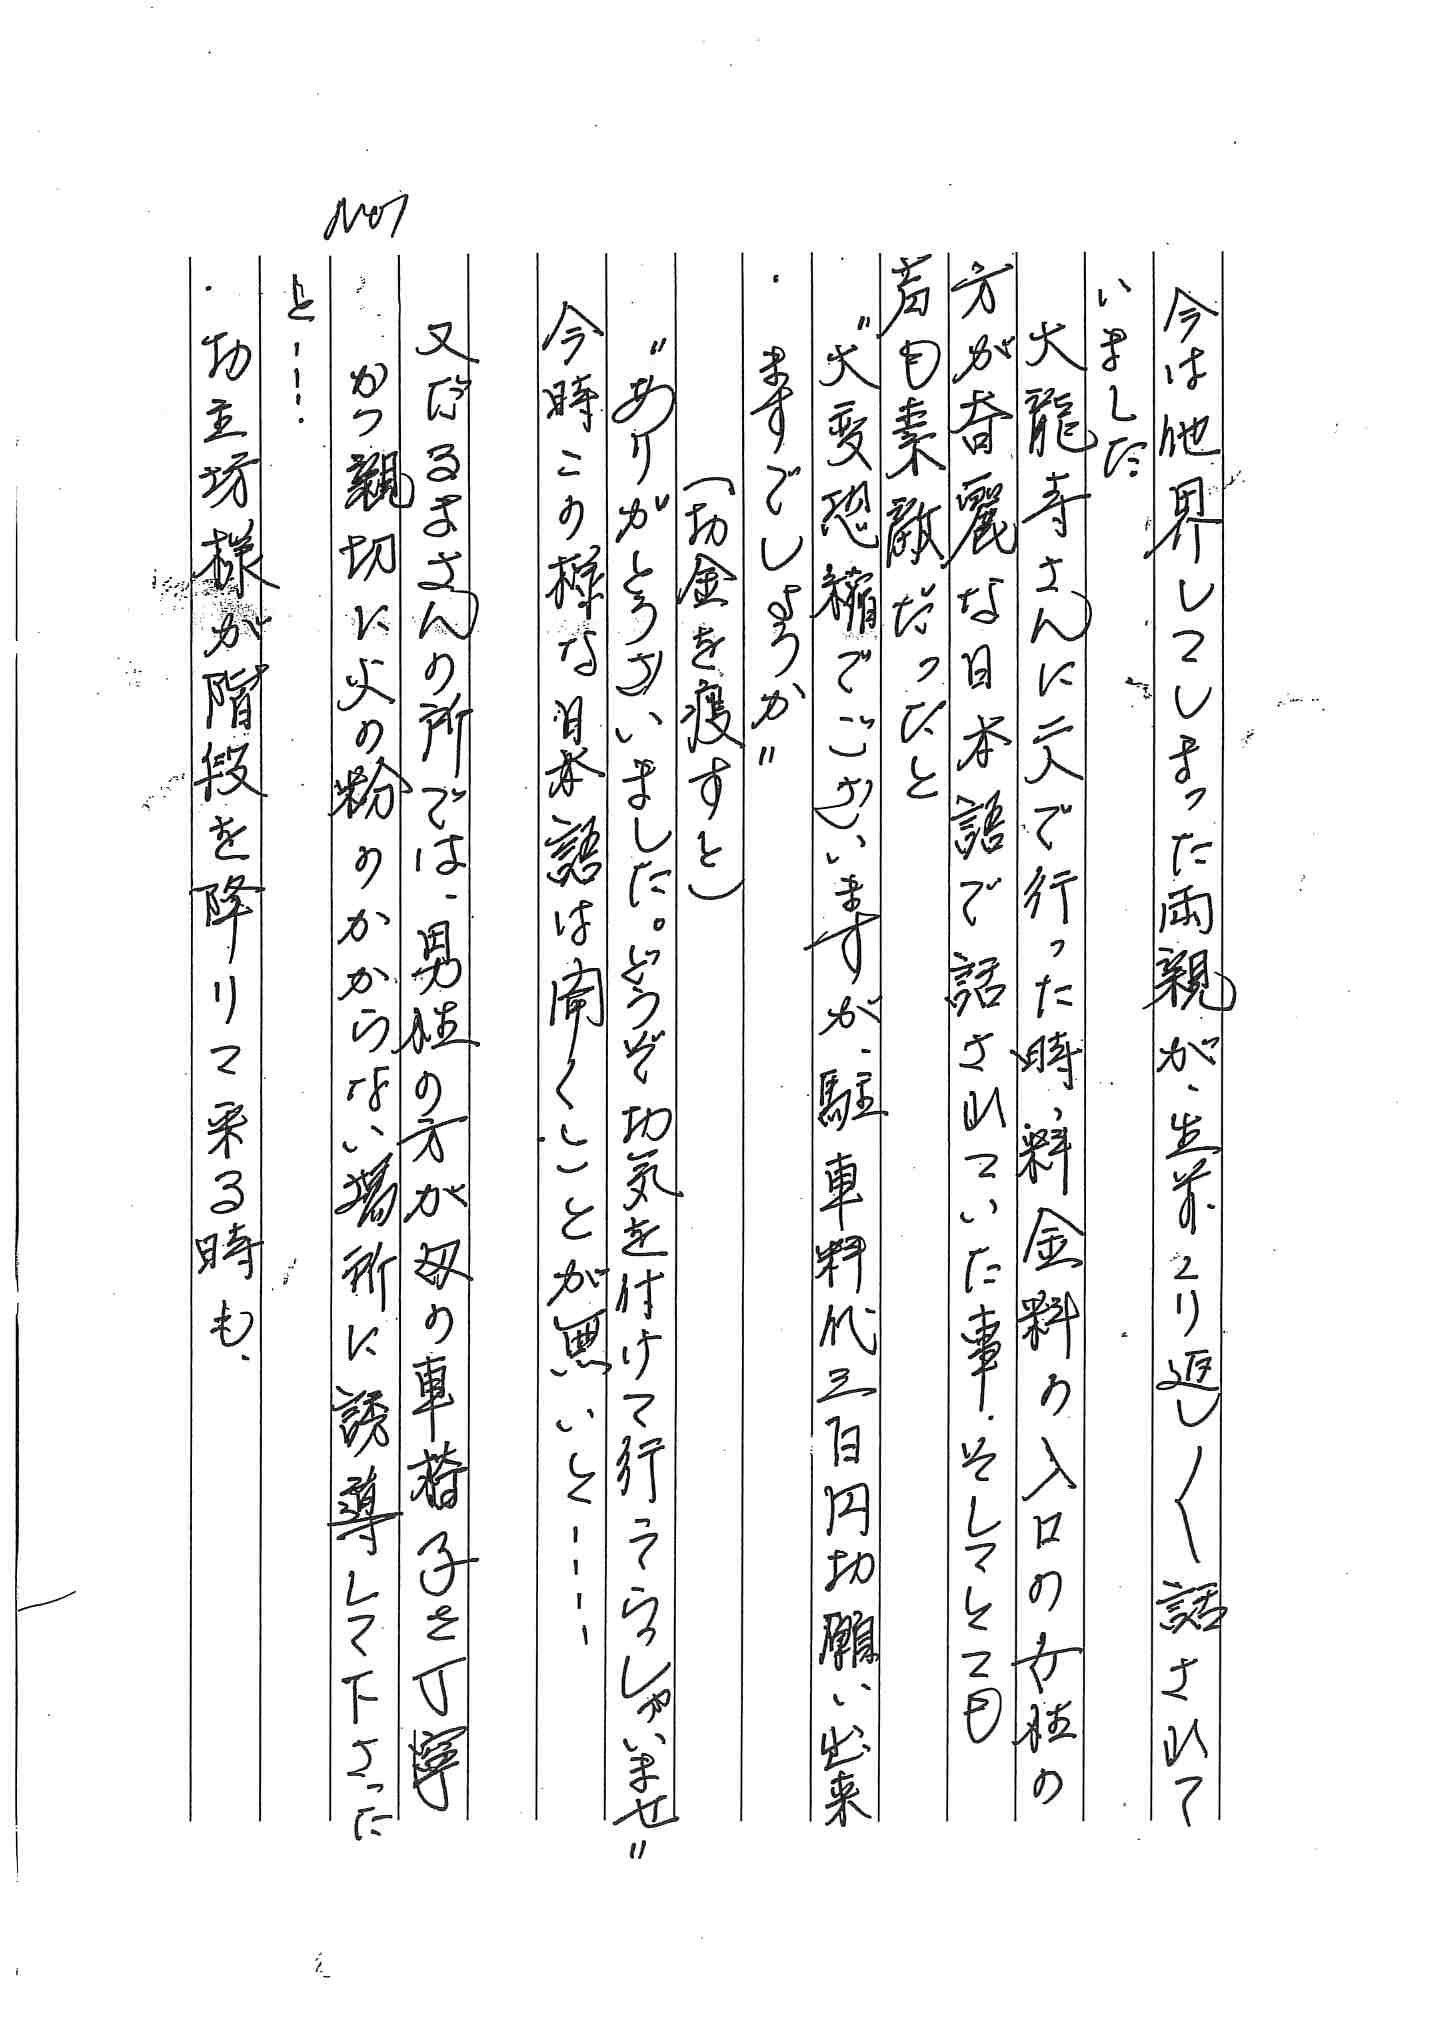 今は他界してしまった両親が、生前くり返し〱話されて
いました
大龍寺さんに二人で行った時、料金料の入口の女性の
方が奇麗な日本語で話されていた事、そしてとても
着も素敵だったと
"大変恐縮でございますが、駐車料代三百円御願い出来
ますでしょうか"
(御金を渡すと)
"ありがとうございました。どうぞ御気を付けて行ってらっしゃいませ"
今時この様な日本語は聞くことが無いと----
又だるまさんの所では、男性の方が母の車椅子を丁寧
かつ親切に火の粉のかからない場所に誘導して下さった
と---.
御主坊様が階段を降りて来る時も、
No1